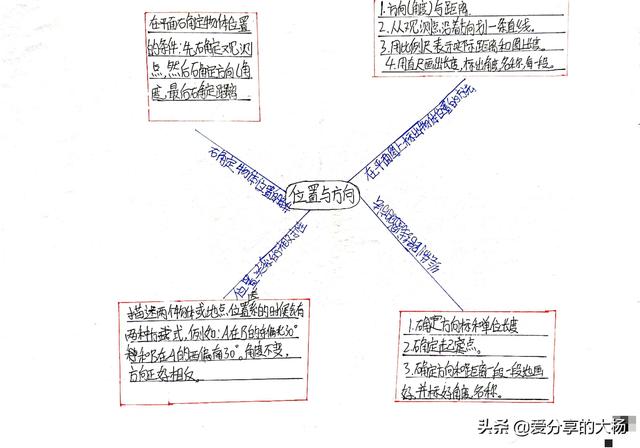 在平面确定物体位置
的条件:先确定观测
点,然后确定方向(角
度),最后确定距离
1.方向(角度)与距离。
2.从观测点沿着方向划一条直线。
3.用比例尺表示实际距离和图上长度。
4.用直尺画出长度,标出角度,名称,角一段。
确定物体位置的条件
在平面图上标出物体位置的方法
位置与方向
位置关系的相对性
描述两个物体或地点位置关系的时候会有
两种方式,例如:A在B的东偏北30°
和B在A的西偏南30°。角度不变,
方向正好相反。
1.确定方向标和单位长度
2.确定起点。
3.确定方向和距离一段一段地画
好,并标好角度,名称。
头条 @爱分享的大杨